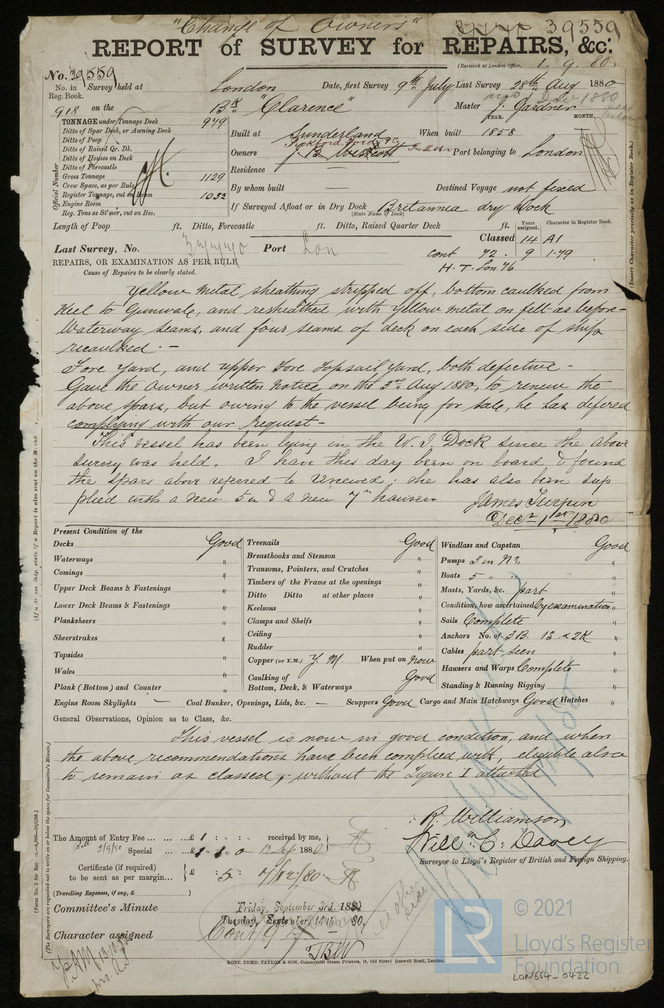 "Change of Owners"
39559
REPORT of SURVEY for REPAIRS, &c.
(Received at London Office, 1. 9. 80
No. 39559
No. in Reg. Book. Survey held at London Date, first Survey 9th July Last Survey 28th Aug 1880
918 on the Bk "Clarence" Master J. Gardner
TONNAGE under Tonnage Deck 979
YEAR. MONTH.
Ditto of Spar Deck, or Awning Deck
Built at Sunderland When built 1858
Ditto of Poop
Ditto of Raised Qr. Dk.
Owners Port belonging to London
Ditto of Houses on Deck
Ditto of Forecastle
Residence
Gross Tonnage 1129
Crew Space, as per Rule
By whom built Destined Voyage not fixed
Register Tonnage, cut on Beam 1032
Engine Room
If Surveyed Afloat or in Dry Dock Britannia dry Dock
(State Name of Dock)
Reg. Tons as St'mer, cut on Bm.
Official Number
Length of Poop ft. Ditto, Forecastle ft. Ditto, Raised Quarter Deck ft.
Years assigned. Character in Register Book.
Classed 14 A1
Last Survey, No. 37770 Port Lon
cont 72. 9 1.79
H.T. Lon 76
REPAIRS, OR EXAMINATION AS PER RULE
Cause of Repairs to be clearly stated.
Yellow Metal sheathing stripped off, bottom caulked from
Keel to Gunwale, and resheathed with Yellow metal on felt as before
Waterway seams, and four seams of deck on each side of ship
recaulked. -
Fore Yard, and upper Fore Topsail Yard, both defective -
Gave the Owner written Notice on the 3rd Aug 1880, to renew the
above spars, but owing to the vessel being for sale, he has defered
complying with our request -
This vessel has been lying in the W. I. Dock since the above
survey was held. I have this day been on board, & found
the spars above referred to renewed; she has also been sup
plied with a new 5 in & a new 7in hawser
James Turpin
Decr 1st 1880
Present Condition of the
Decks Good
Waterways "
Comings "
Upper Deck Beams & Fastenings "
Lower Deck Beams & Fastenings "
Planksheers "
Sheerstrakes "
Topsides "
Wales "
Plank (Bottom) and Counter "
Treenails Good
Breasthooks and Stemson "
Transoms, Pointers, and Crutches "
Timbers of the Frame at the openings "
Ditto Ditto at other places "
Keelsons "
Clamps and Shelfs "
Ceiling "
Rudder "
Copper (or Y.M.) Y. M. When put on now
Caulking of Bottom, Deck, & Waterways Good
Windlass and Capstan Good
Pumps 3 in No. "
Boats 5 " "
Masts, Yards, &c. part "
Condition, how ascertained By examination "
Sails Complete "
Anchors No. of 3B. 1S & 2K "
Cables part seen "
Hawsers and Warps Complete "
Standing & Running Rigging "
Engine Room Skylights — Coal Bunker, Openings, Lids, &c. — Scuppers Good Cargo and Main Hatchways Good Hatches "
General Observations, Opinion as to Class, &c.
This vessel is now in good condition, and when
the above recommendations have been complied with, eligible also
to remain as classed, without the Figure 1 attached
R. Williamson
Will. C. Davey
Surveyor to Lloyd's Register of British and Foreign Shipping.
The Amount of Entry Fee ... ... £ 1 : - : - received by me,
Special ... £ 1 - 1 - 0 1880
Certificate (if required) to be sent as per margin... £ : 5 :
(Travelling Expenses, if any, £ )
Committee's Minute Friday, September 3rd, 1880
Tuesday, September 14th 80.
Character assigned
ROBT. EDMD. TAYLOR & SON, Commercial Steam Printers, 19, Old Street, Goswell Road, London.
© 2021
LR
Lloyd's Register
Foundation
LON664-0422